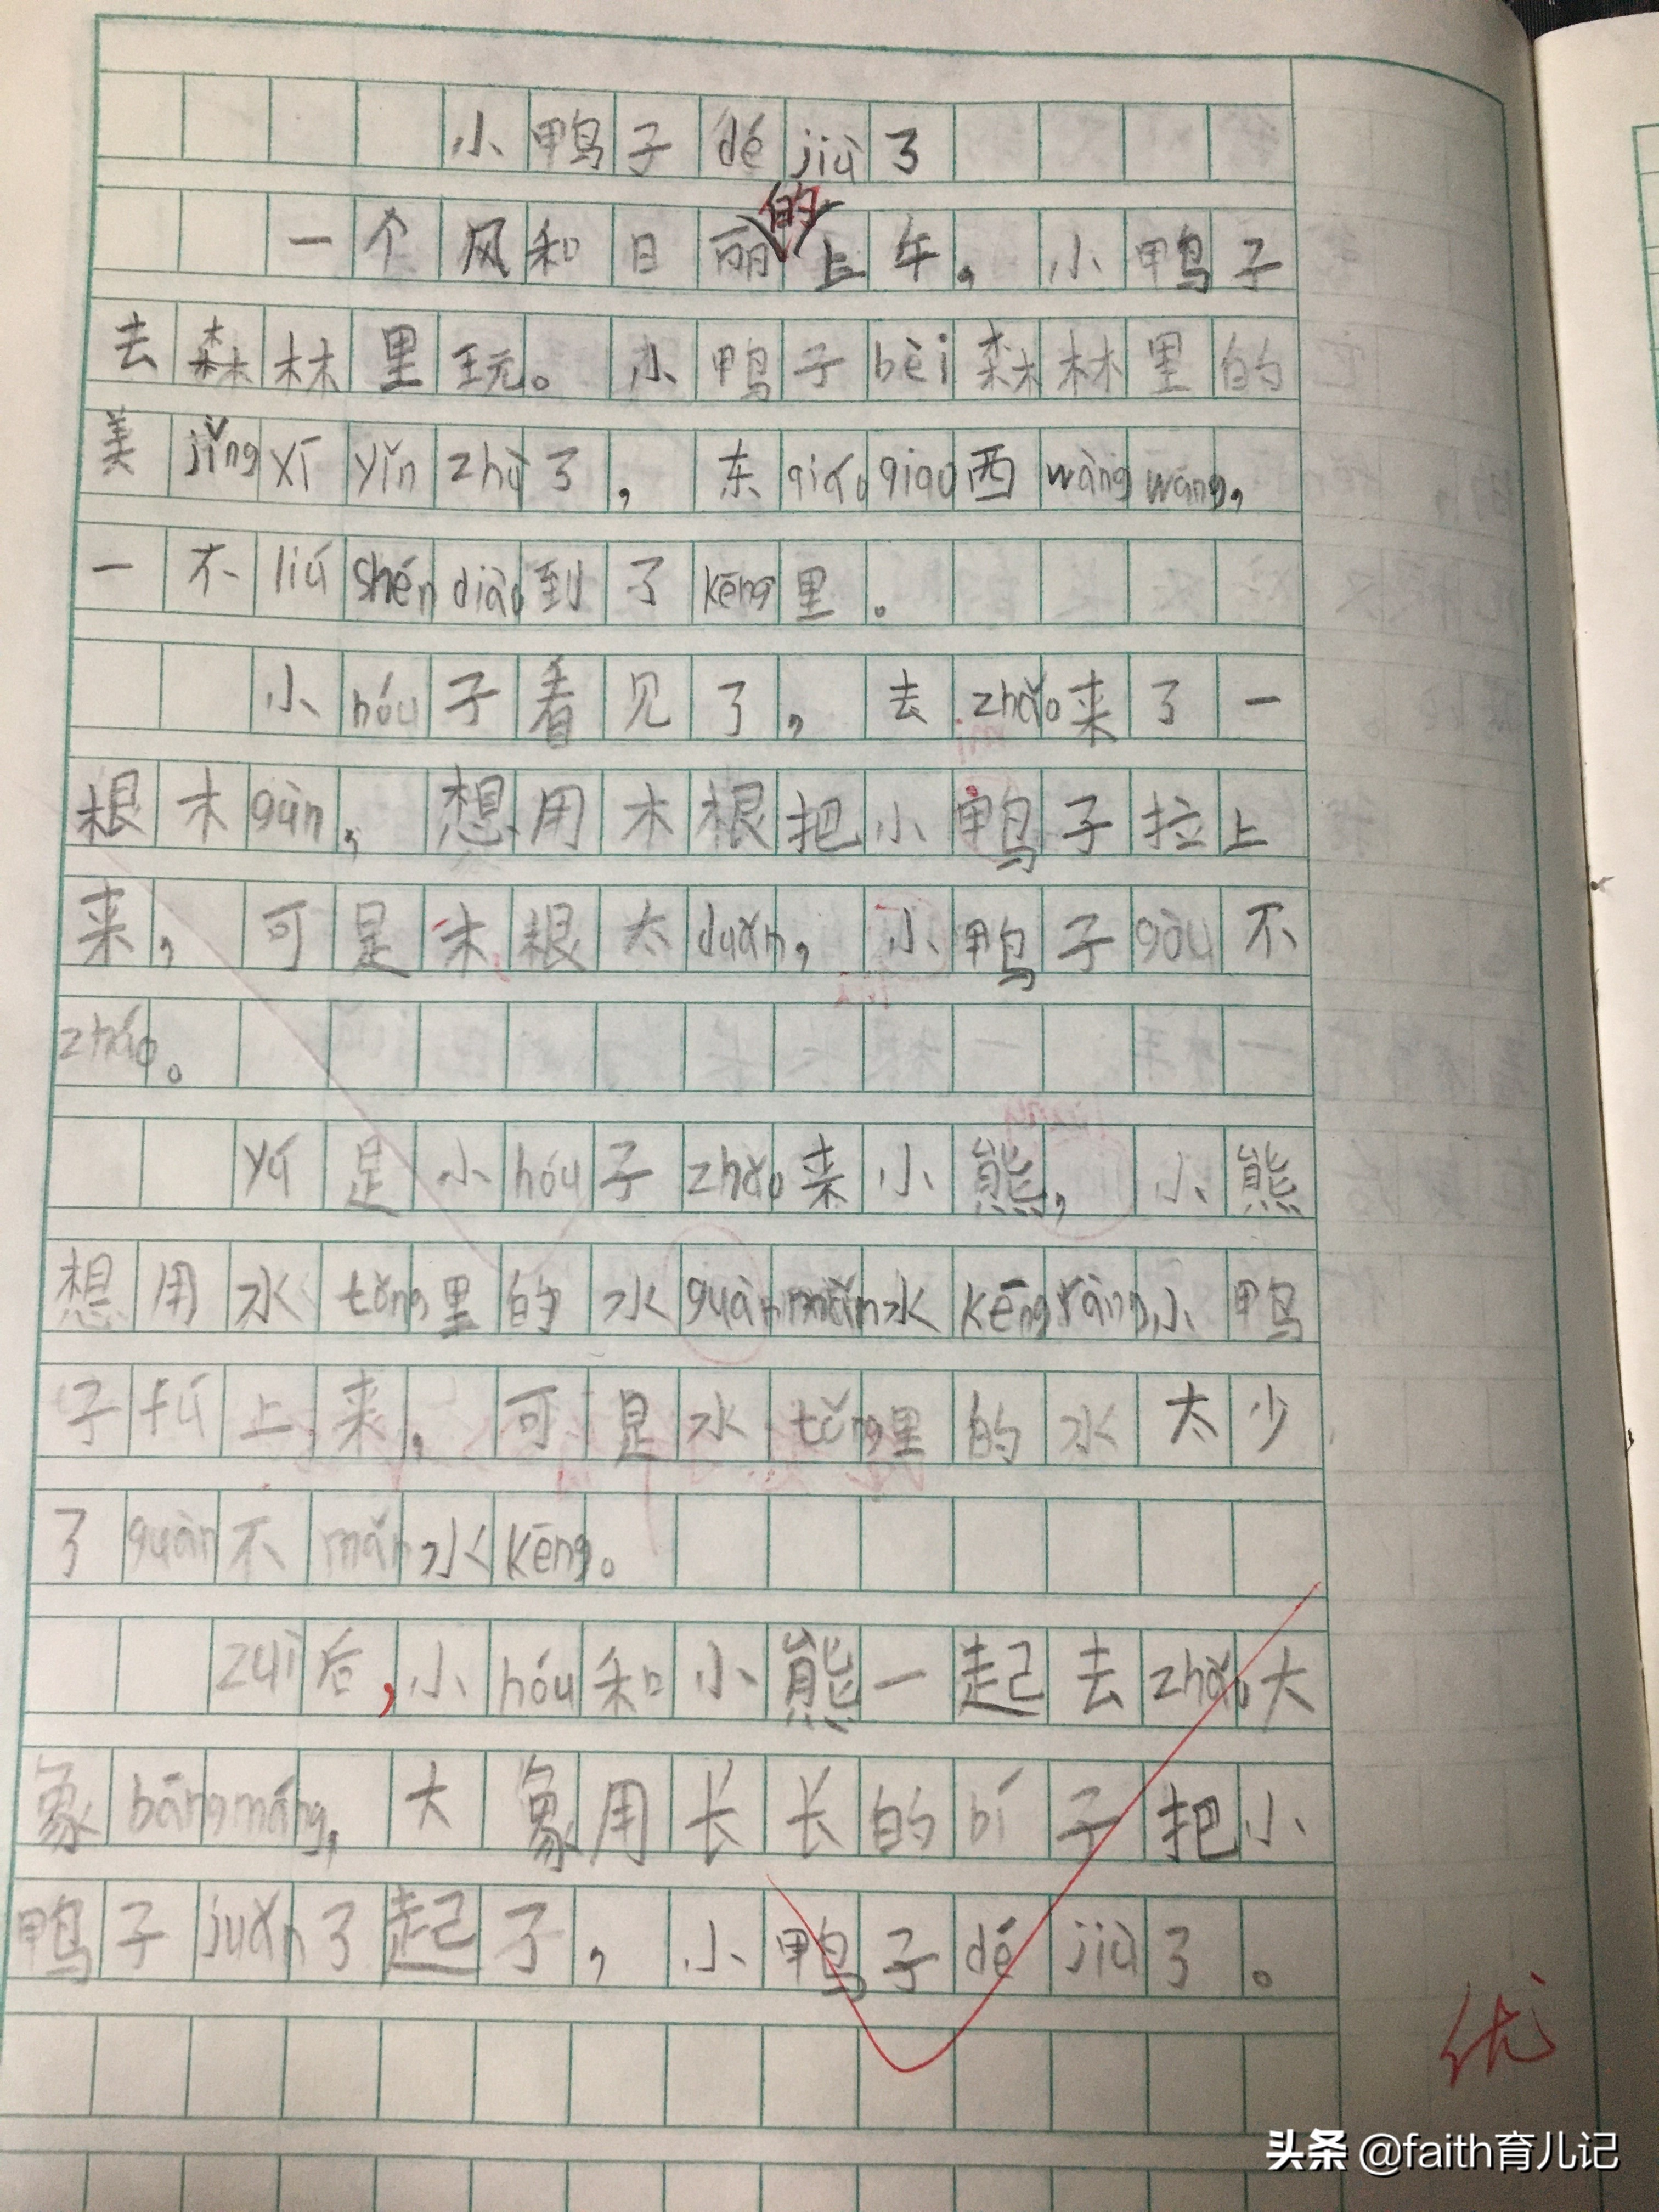 小鸭子dé jiù了
一个风和日丽的上午，小鸭子
去森林里玩。小鸭子bèi森林里的
美jǐng xī yǐn zhù了，东qiáo qiao西wàng wang，
一不liú shén diào到了kēng里。
小hóu子看见了，去zhǎo来了一
根木gùn，想用木根把小鸭子拉上
来，可是木根太duǎn，小鸭子gòu不
zháo。
yú是小hóu子zhǎo来小熊，小熊
想用水tǒng里的水guàn mǎn水kēng ràng小鸭
子fú上来，可是水tǒng里的水太少
了guàn不mǎn水kēng。
zuì后，小hóu和小熊一起去zhǎo大
象bāng máng，大象用长长的bí子把小
鸭子juǎn了起了，小鸭子dé jiù了。
优
头条 @faith育儿记